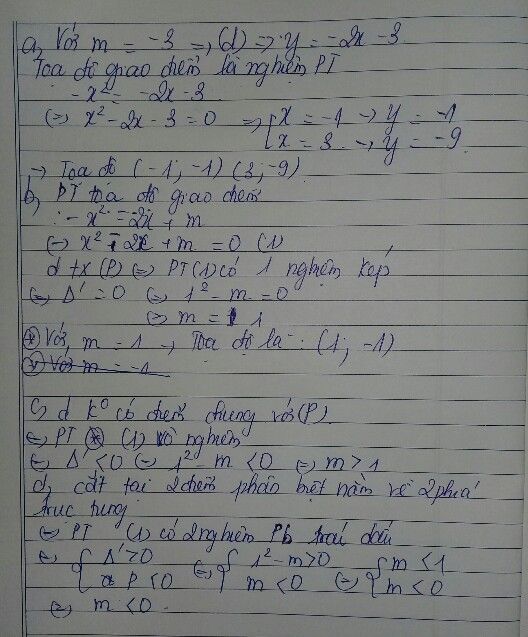 a, Với m = -3 => (d) => y = -2x - 3
Toạ độ giao điểm là nghiệm PT
- x² = -2x - 3
(=) x² - 2x - 3 = 0 => [x = -1 -> y = -1
x = 3 -> y = -9
-> Toạ độ (-1; -1) (3; -9)
b, PT toạ độ giao điểm
- x² = -2x + m
(=) x² - 2x + m = 0 (1)
d tx (P) (=) PT (1) có 1 nghiệm kép
(=) Δ' = 0 (=) 1² - m = 0
(=) m = 1
(*) Với m = 1 -> Toạ độ là : (1; -1)
(v) Với m = -1
c, d k° có điểm chung với (P)
(=) PT (*) (1) vô nghiệm
(=) Δ' < 0 (=) 1² - m < 0 (=) m > 1
d, cắt tại 2 điểm phân biệt nằm về 2 phía
trục tung
(=) PT (1) có 2 nghiệm Pb trái dấu
(=) { Δ' > 0 (=) { 1² - m > 0 (=) { m < 1
P < 0 m < 0 m < 0
(=) m < 0.